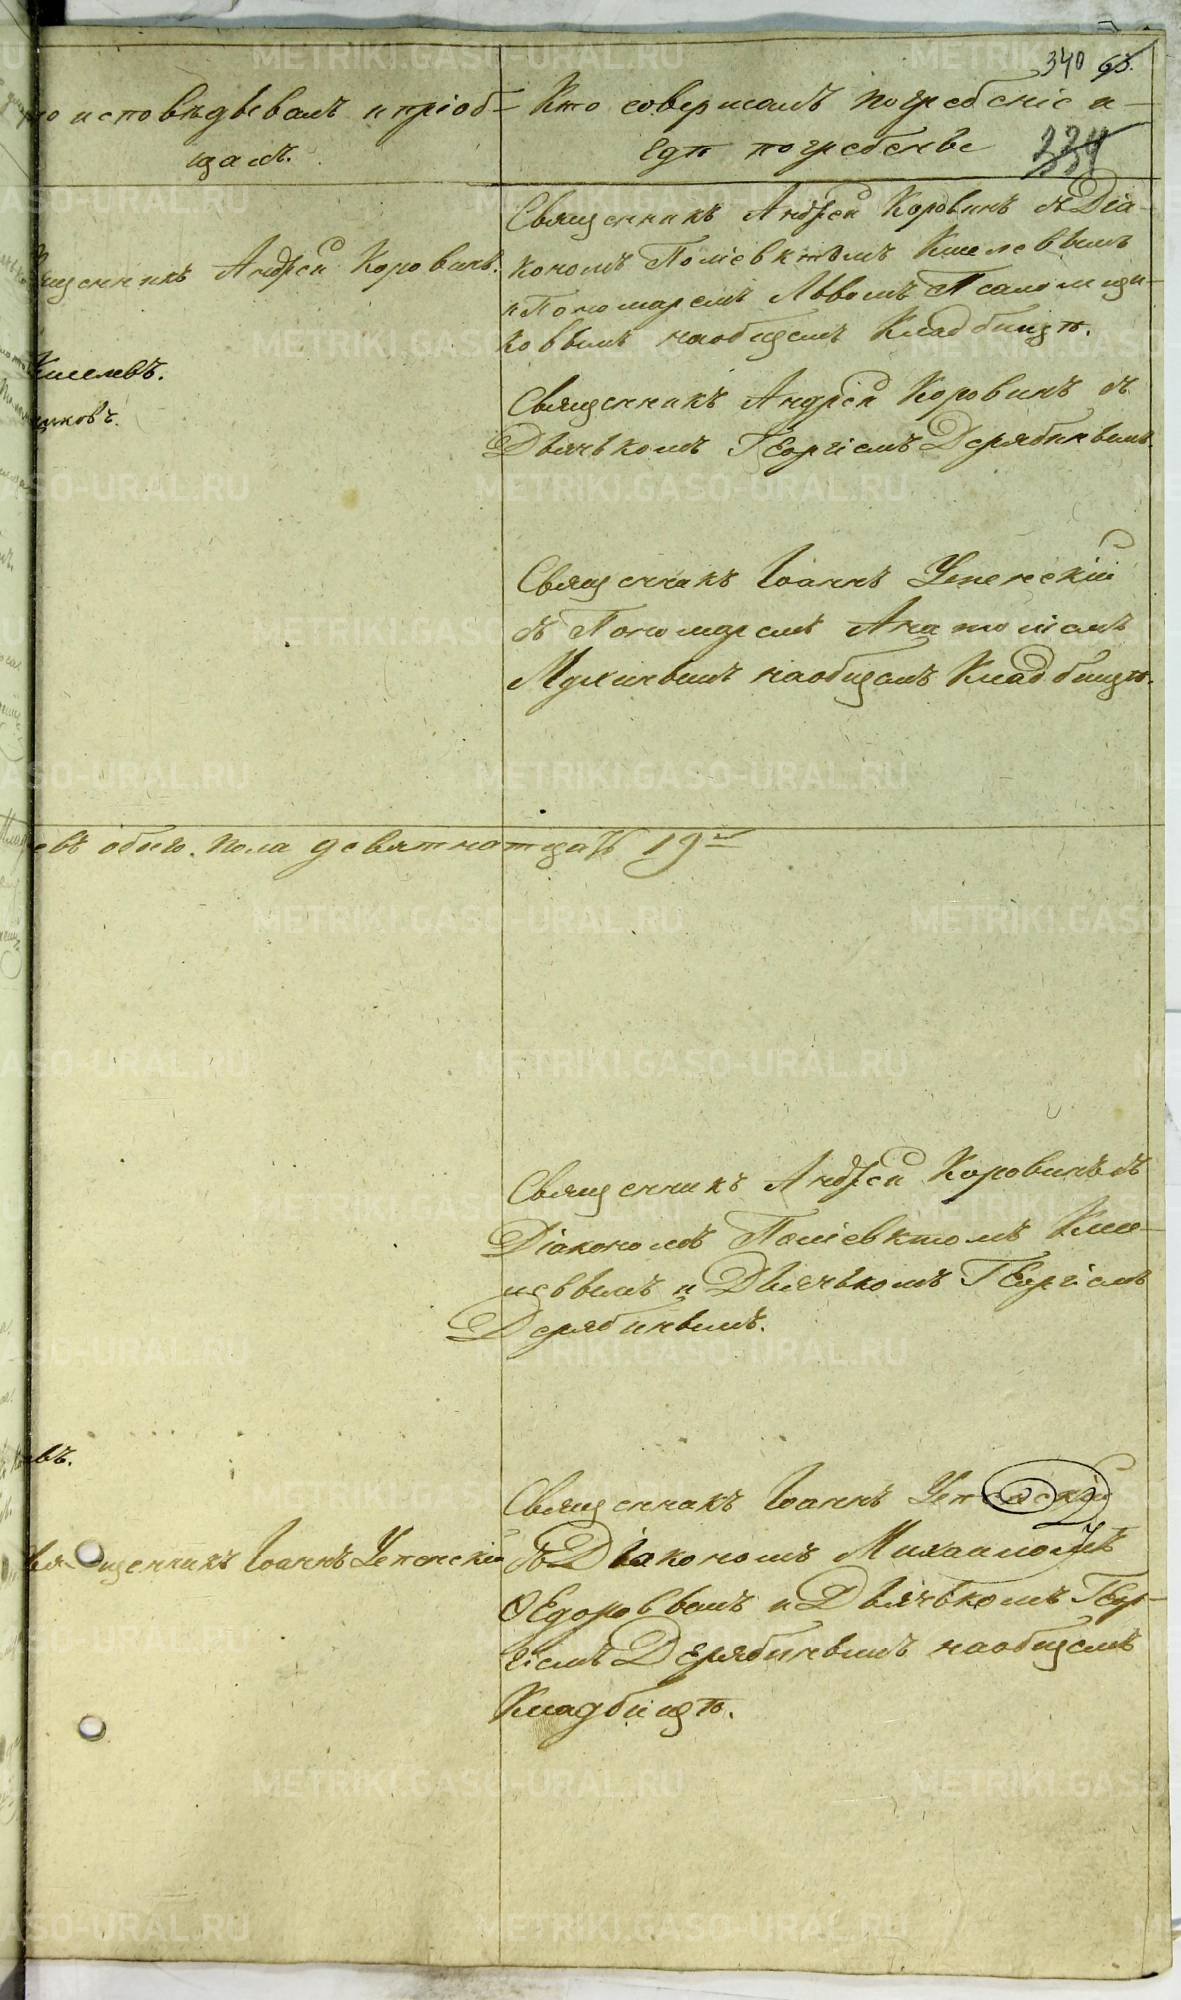 340 63.
334
то исповѣдывалъ и пріоб-
щалъ.
Кто совершалъ погребеніе и
гдѣ погребены
Священникъ Андрей Коровинъ съ Діа-
кономъ Поліевктомъ Киселевымъ
и Пономаремъ Львомъ Псаломщи-
ковымъ на общемъ Кладбищѣ.
щенникъ Андрей Коровинъ.
Киселевъ.
щиковъ.
Священникъ Андрей Коровинъ съ
Дьячькомъ Георгіемъ Дерябинымъ.
Священникъ Іоаннъ Успенскій
съ Пономаремъ Анатоліемъ
на общемъ Кладбищѣ.
евъ обоего пола девятнатцать 19ть
Священникъ Андрей Коровинъ съ
Діакономъ Поліевктомъ Кисе-
левымъ и Дьячькомъ Георгіемъ
Дерябинымъ.
въ.
Священникъ Іоаннъ Успенскій
вященникъ Іоаннъ Успенскій
съ Діакономъ Михаиломъ
Ѳедоровымъ и Дьячькомъ Геор-
гіемъ Дерябинымъ на общемъ
Кладбищѣ.
METRIKI.GASO-URAL.RU